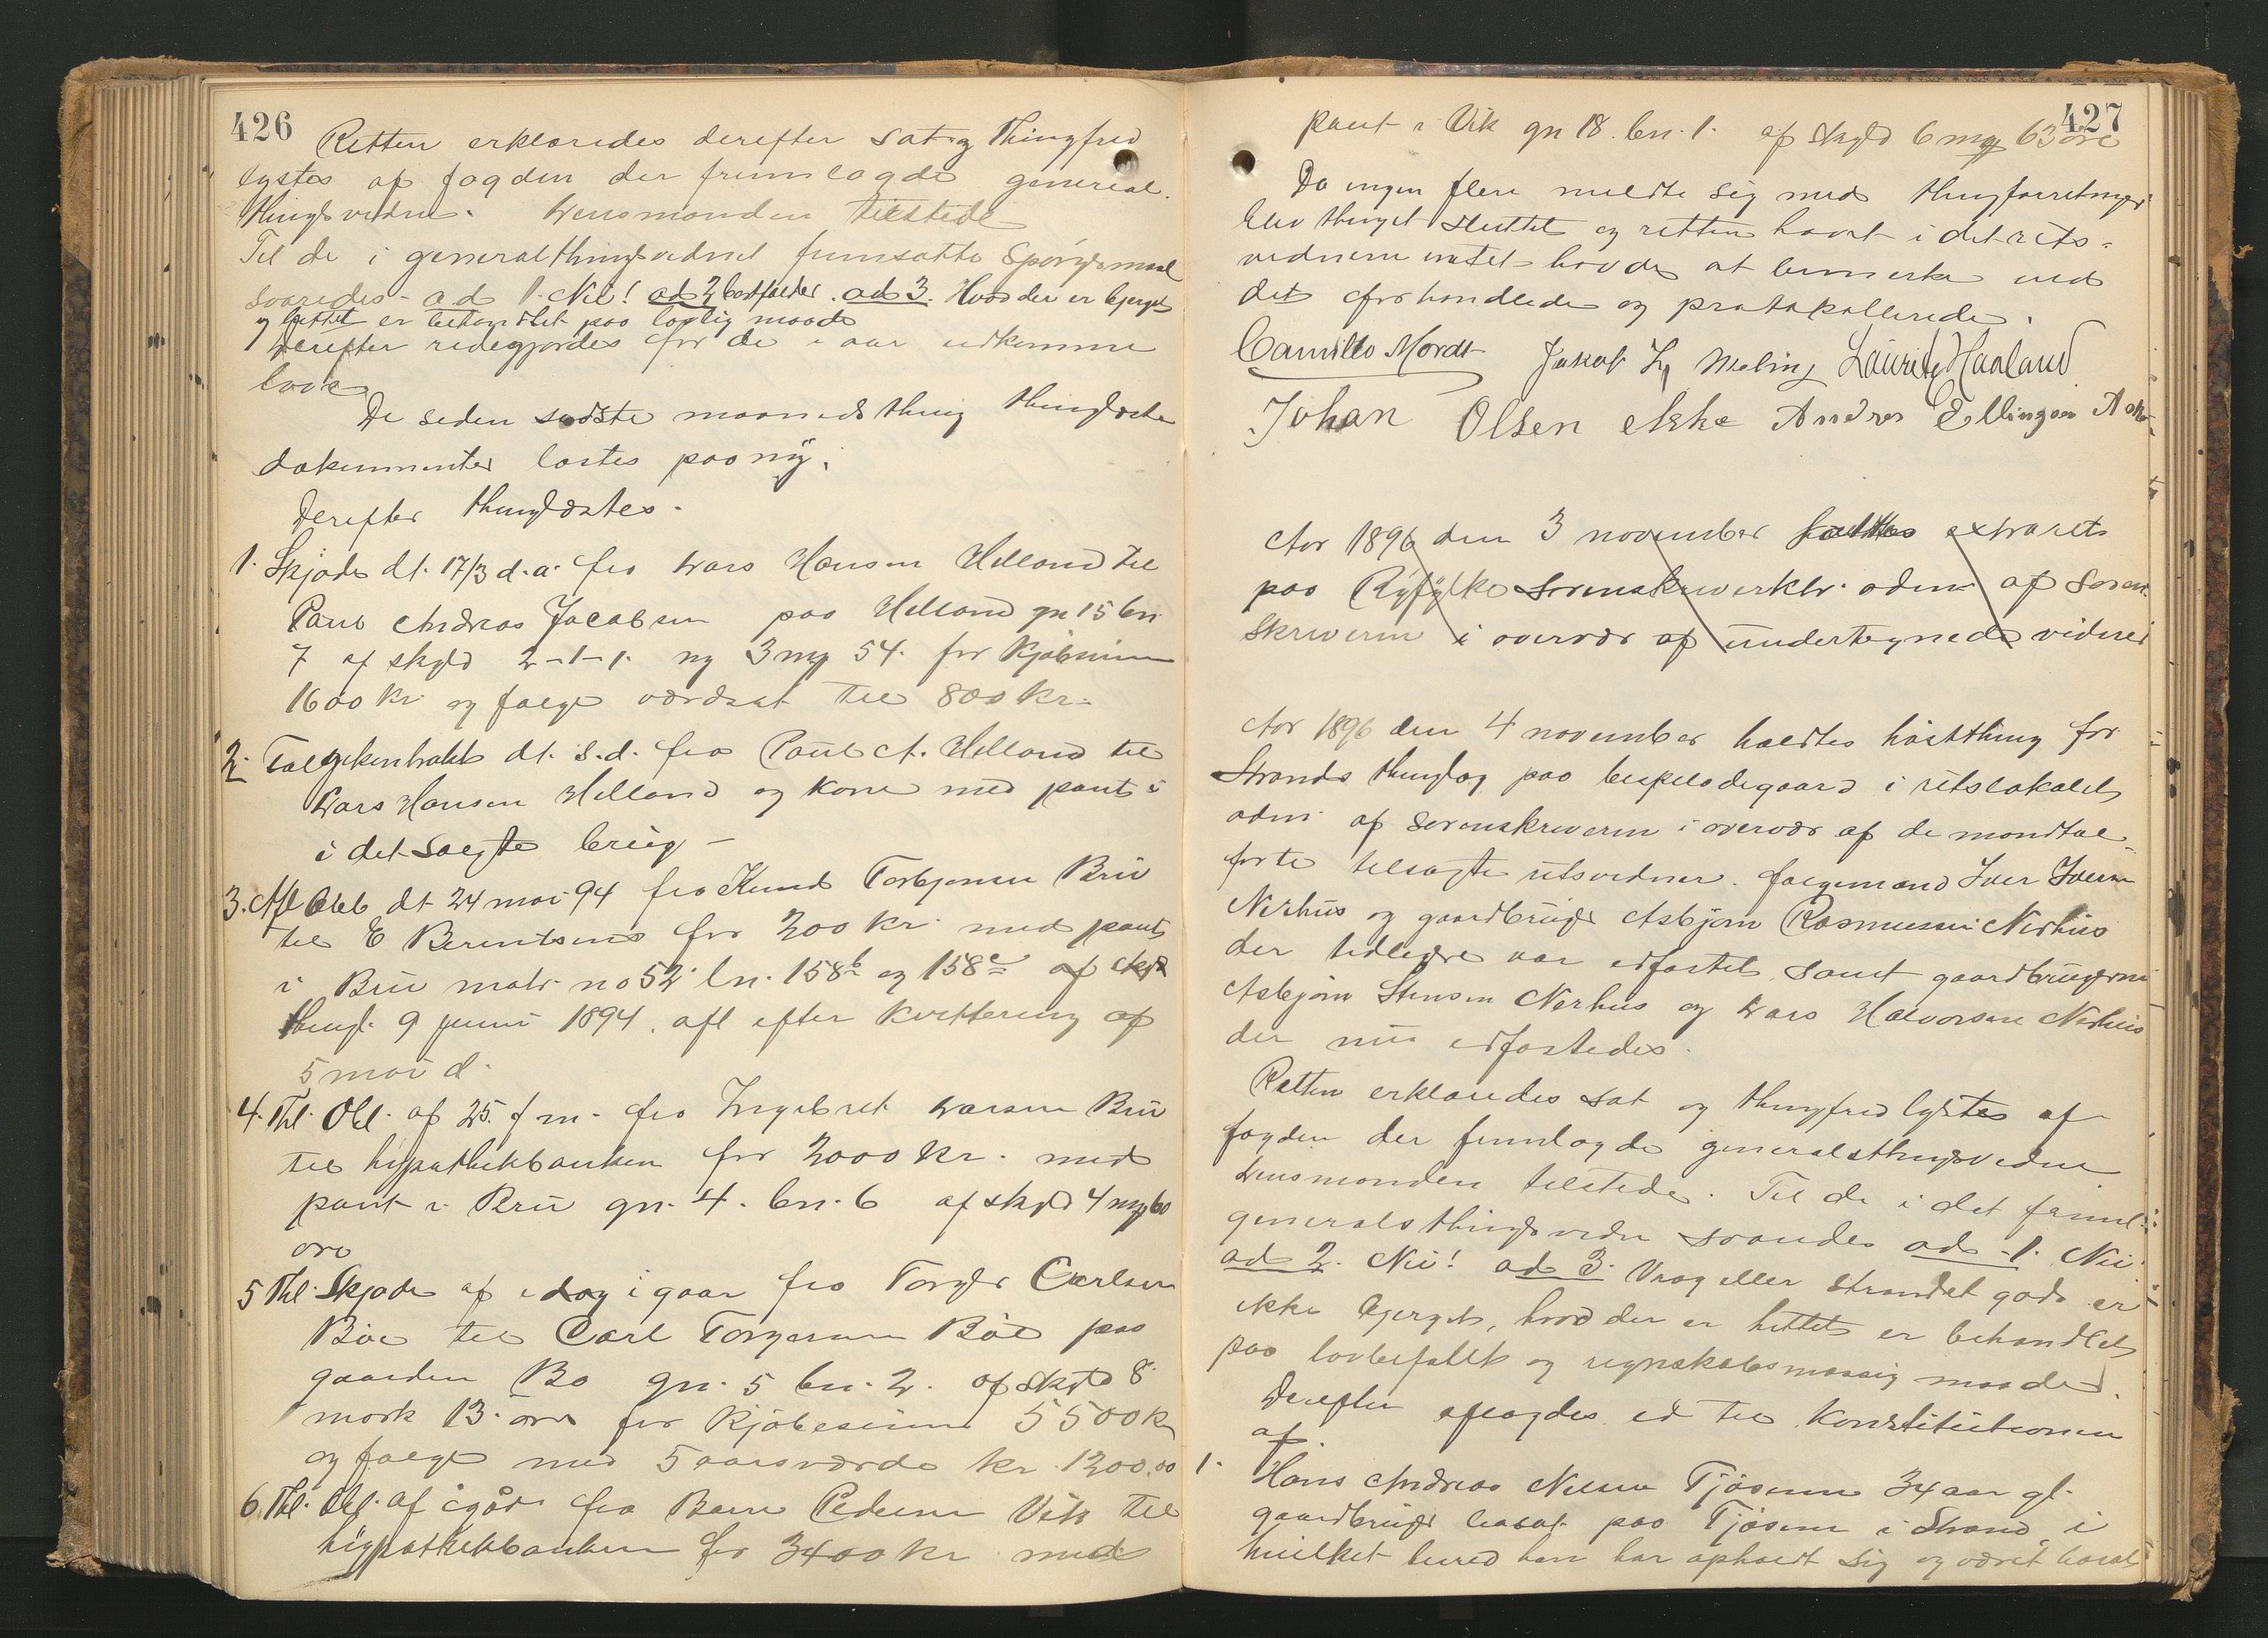 426
Retten erklæredes derefter sat og Thingfred
lystes af fogden der fremlagde general
thingsvidne. Lensmanden tilstede
Til de i generalthingsvidnet fremsatte Spørgsmaal
svaredes ad 1. Nei! ad 2 bortfalder. ad 3. Hvad der er bjerget
og hittet er behandlet paa lovlig maade
Derefter redegjordes for de i aar udkomne
love
De siden sidste maanedsthing thinglæste
dokumenter læstes paa ny.
Derefter thinglæstes.
1. Skjøde dt. 17/3 d.a. fra Lars Hansen Helland til
Paul Andreas Jacobsen paa Helland gn 15 bn
7 af skyld 2-1-1. ny 3 mg 54. for kjøbesum
1600 kr og folge værdsat til 800 kr.
2. Folgekontrakt dt. s.d. fra Paul A. Helland til
Lars Hansen Helland og kone med pant i
i det solgte brug -
3. Afl Obl dt 24 mai 94 fra Knud Torbjensen Bru
til E Berentsens for 200 kr. med pant
i Bru matr. no 52 ln. 158b og 158c af
thingl. 9 juni 1894. afl efter kvittering af
5 mai d.
4. Thl. Obl. af 25. f m. fra Ingebret Larsen Bru
til hypothekbanken for 2000 kr. med
pant i Bru gn. 4. bn. 6 af skyld 4 mg 60
øre
5 Thl. Skjøde af idag igaar fra Torger Carlsen
Bøe til Carl Torgersen Bøe paa
gaarden Bø gn. 5 bn. 2. af skyld 8
mark 13 øre for kjøbesum 5500 kr
og folge med 5 aarsværde kr. 1200.00
6. Thl. Obl. af igår fra Pedersen Vik til
hypothekbanken for 3400 kr med
427
pant i Vik gn 18. bn. 1. af skyld 6 mg 63 øre
Da ingen flere meldte sig med thingforretninger
blev thinget sluttet og retten hævet i det rets-
vidnerne intet havde at bemerke ved
det forhandlede og protokollerede.
Camillo Mordt Jakob L, Meling Lauritz Haaland
Johan Olsen Aske Andres Ellingsen Aske
Aar 1896 den 3 november holdtes extraret
paa Ryfylke Sorenskriverktr. adm. af Soren
skriveren i overvær af undertegnede vidner
Aar 1896 den 4 november holdtes høstthing for
Strands thinglag paa i retslokalet
adm. af Sorenskriveren i overvær af de mandtal-
førte tilsagte retsvidner. Folgemand Iver Iversen
Nerhus og gaardbruger Asbjørn Rasmussen Nerhus
der tidligere var edfæstet samt gaardbrugerne
Asbjørn Stensen Nerhus og Lars Halvorsen Nerhus
der nu edfæstedes.
Retten erklæredes sat og thingfred lystes af
fogden der fremlagde generalsthingsvidne
Lensmanden tilstede. Til de i det freml.
generalsthingsvidne svaredes ad 1. Nei.
ad 2. Nei! ad 3. Vrag eller strandet gods er
ikke bjerget, hvad der er hittet er behandlet
paa lovbefalet og regnskabsmæssig maade.
Derefter aflagdes ed til Konstitutionen
af
1. Hans Andreas Nilsen Tjøsem 34 aar gl.
gaardbruger bosat paa Tjøsem i Strand i
hvilket herred han har opholdt sig og været bosat